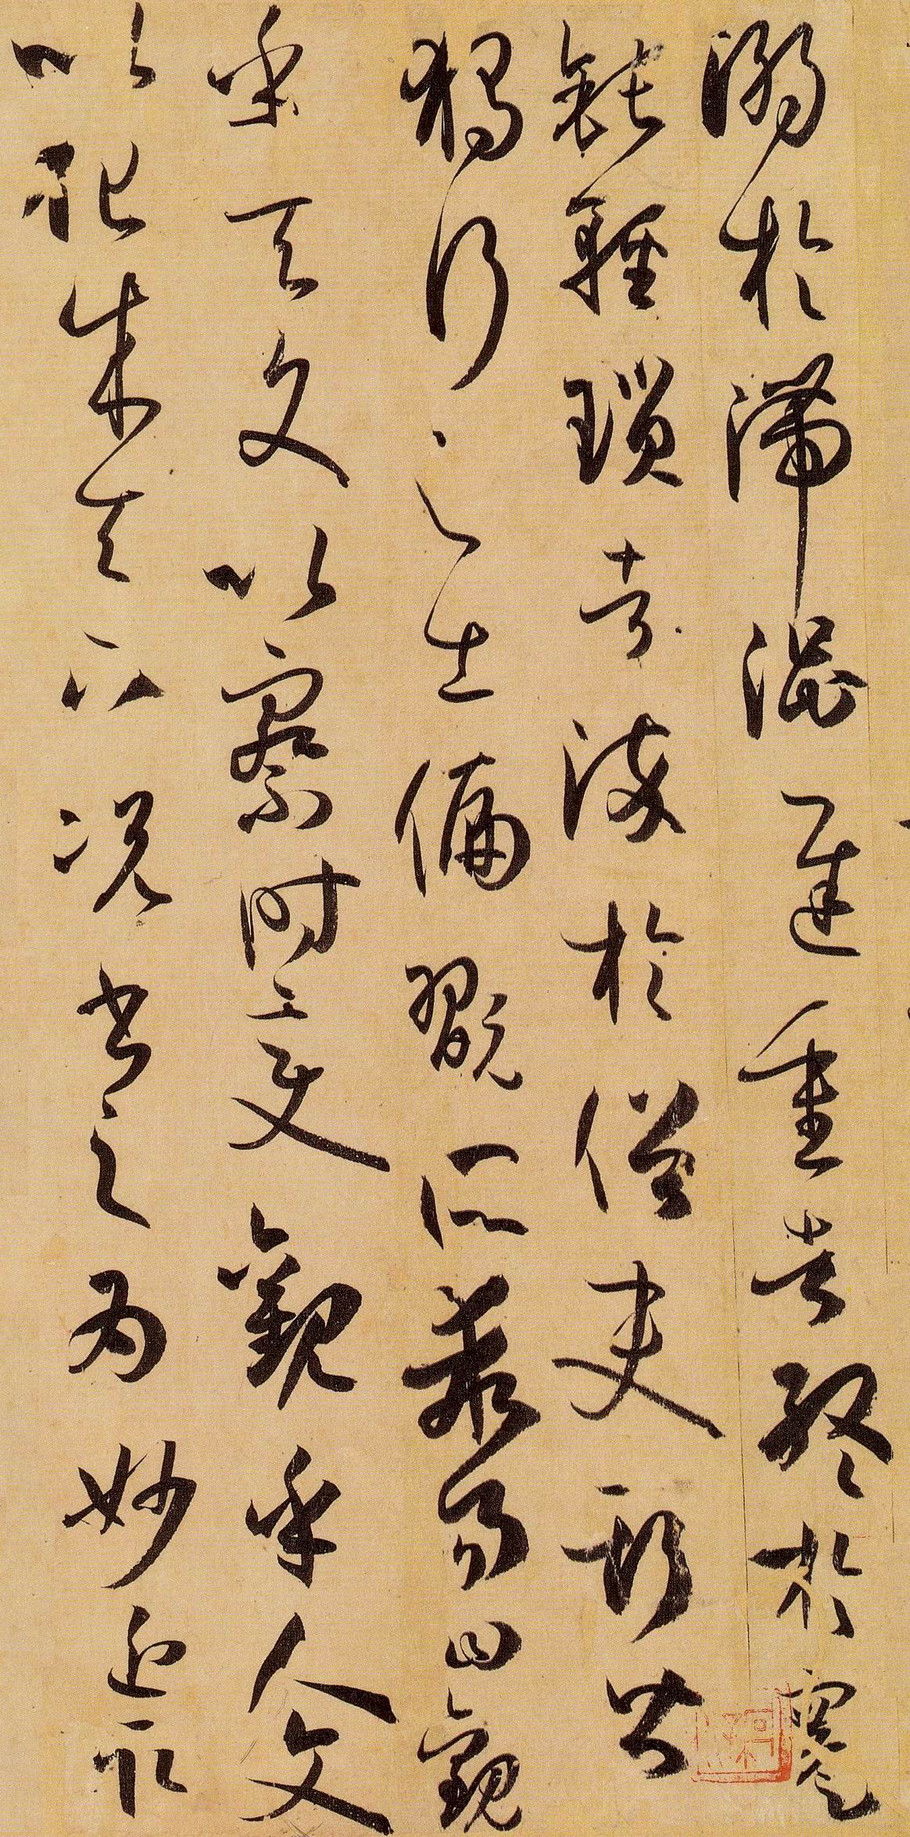 溺於滯澀遲重者終於蹇
鈍輕瑣者染於俗吏斯皆
獨行之士偏翫所乖易曰觀
乎天文以察時變觀乎人文
以化成天下況書之為妙近取